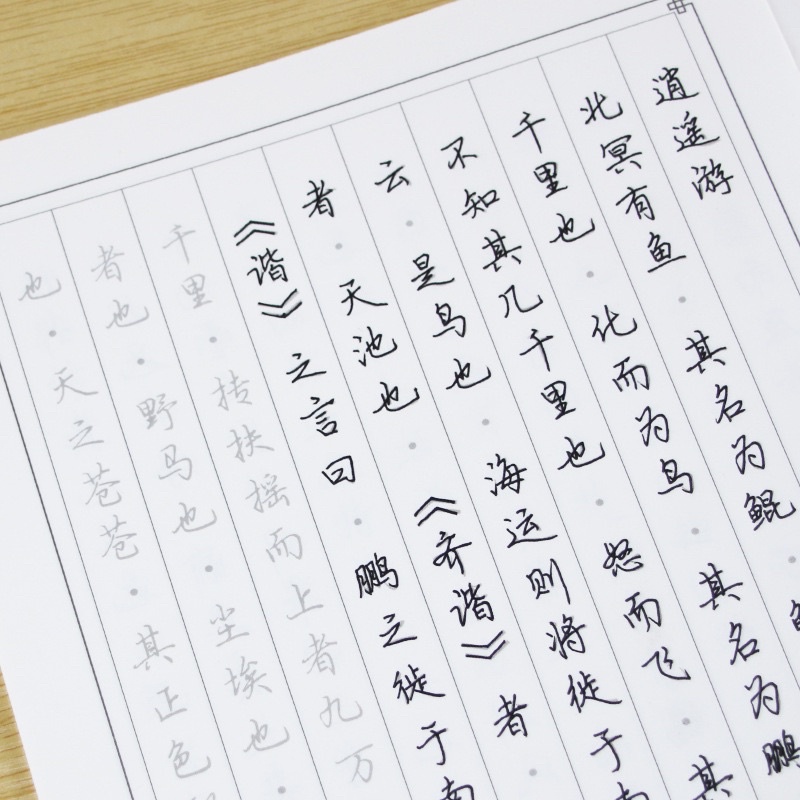 逍遥游
北冥有鱼·其名为鲲·
千里也·化而为鸟·其名为鹏
不知其几千里也·怒而飞·其
云·是鸟也·海运则将徙于南
者·天池也·《齐谐》者·
《谐》之言曰·鹏之徙于南
千里·抟扶摇而上者九万
者也·野马也·尘埃也·
也·天之苍苍·其正色